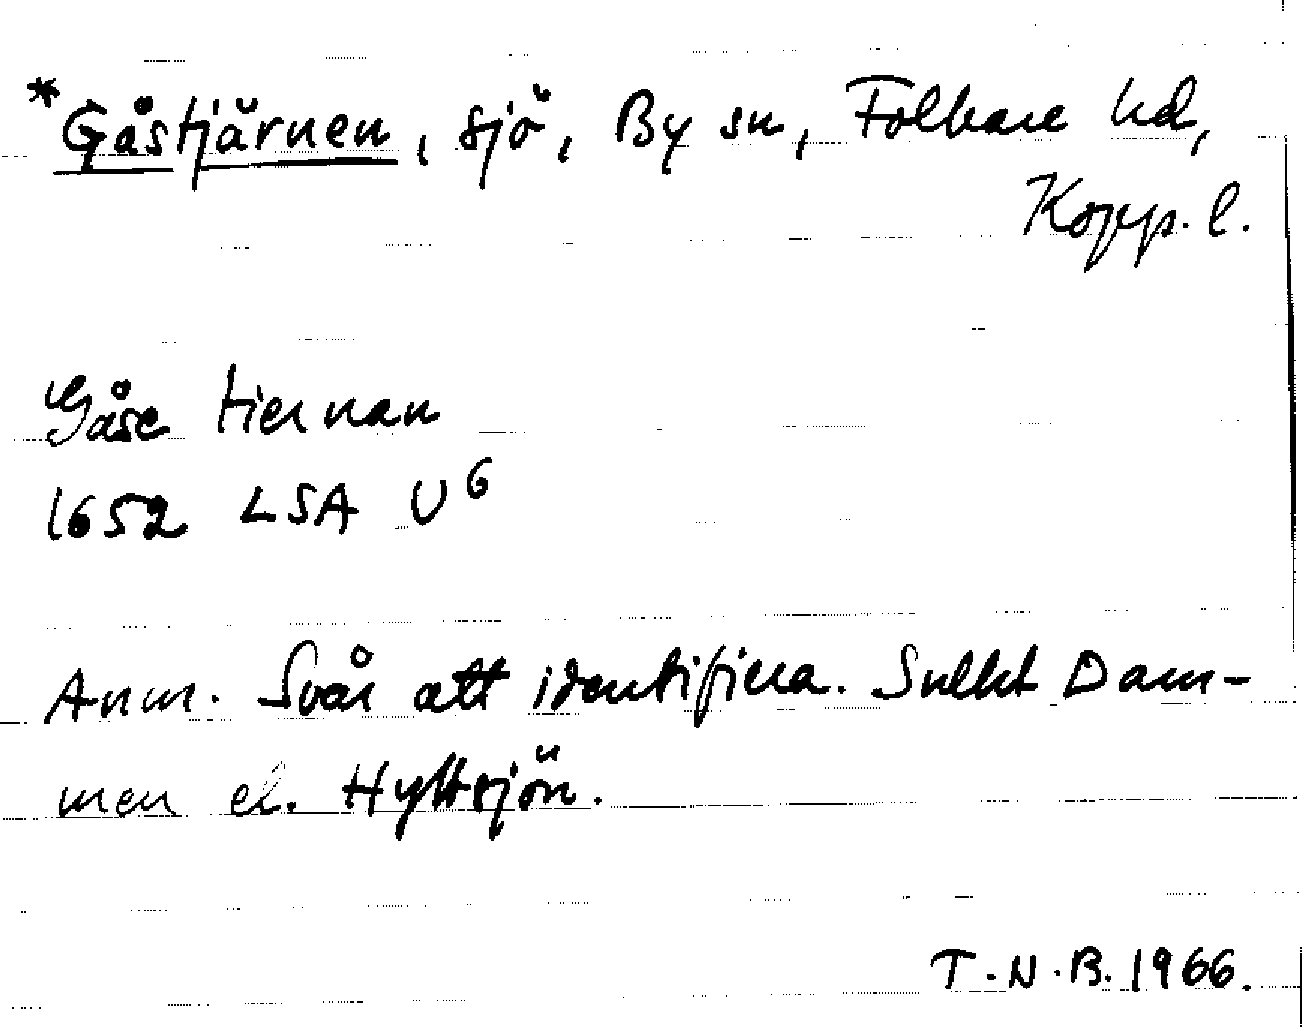 *Gåstjärnen, sjö, By sn, Folkare hd,
Kopp. l.
Gåse tiernan
1652 LSA U6
Anm. Svår att identifiera. Snellst Dam-
men el. Hyttsjön.
T.N.B. 1966.